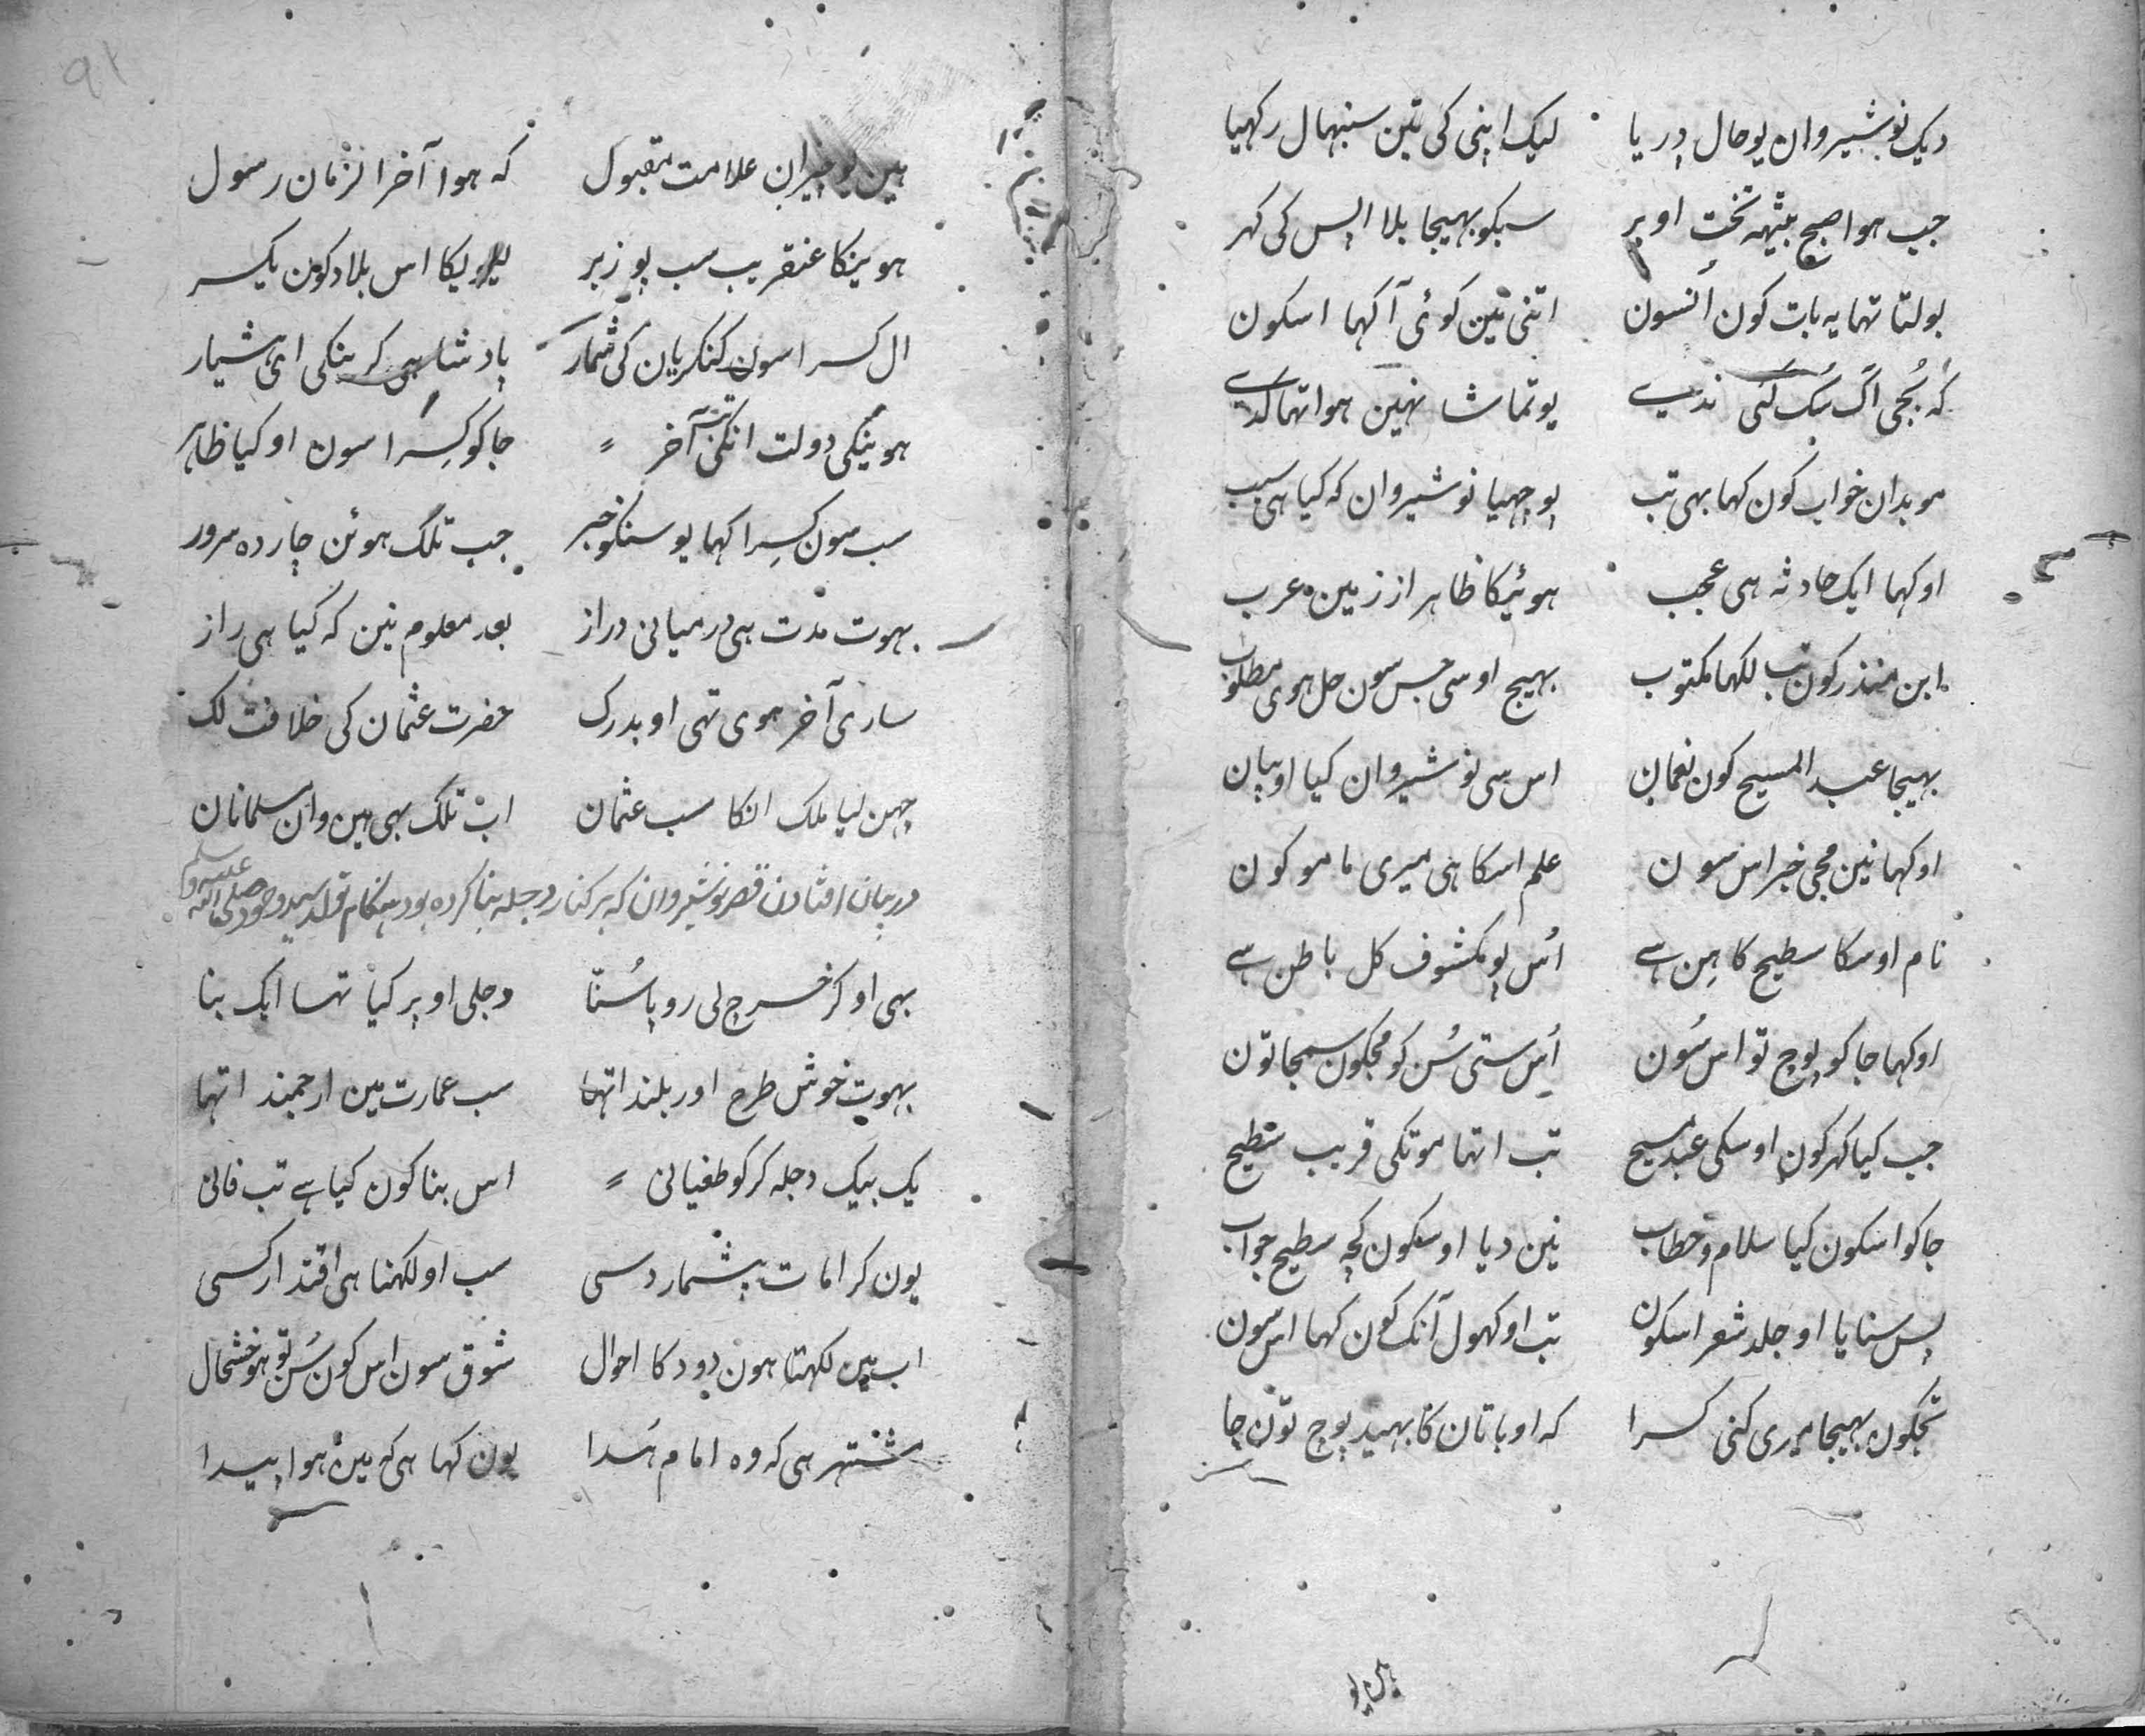 دیک نوشیروان یو حال دریا لیک اپنی کی تین سنبھال رکھیا
جب ہوا صبح بیٹھہ تخت اوپر سبکو بھیجا بلا اپس کی گھر
بولتا تھا یہ بات کون انسون اتنی مین کوئی آ کہا اسکون
کہ بُجی اگ سُک گئی ندی یو تماشا نہین ہوا تھا کدے
موبدان خواب کون کہا بھی تب پوچھیا نوشیروان کہ کیا ہی سبب
او کہا ایک حادثہ ہی عجب ہوئیگا ظاہر از زمین عرب
ابن منذر کون تب لکھا مکتوب بھیج اوسی جس سون حل ہوی مطلوب
بھیجا عبد المسیح کون نعمان اس سی نوشیروان کیا او بیان
او کہا نین مجی خبر اس سون علم اسکا ہی میری مامو کون
نام اوسکا سطیح کاہِن ہے اُس پو مکشوف کل باطن ہے
او کہا جا کو پوچ تو اس سُون اُس ستی سُن کو مجکون سمجا تون
جب گیا گھر کون اوسکی عبد مسیح تب اتھا موتکی قریب سطیح
جا کو اسکون کیا سلام و خطاب نین دیا اوسکون کچہ سطیح جواب
پس سنایا او جلد شعر اسکون تب او کھول آنک کون کہا اس سون
تجکون بھیجا مری کنی کسرا کہ او باتان کا بھید پوچ تون جا
ہین یو
۹۲
ہین یو علامت مقبول کہ ہوا آخر الزمان رسول
ہوینگا عنقریب سب پو زبر لیویگا اس بلاد کون یکسر
ال کسرا سون کنکریان کی شمار پادشاہی کرینگی ای ہشیار
ہوینگی دولت انکی آخر جا کو کِسرا سون او کیا ظاہر
سب سون کِسرا کہا یو سنکو خبر جب تلک ہوئن چارده سرور
بہوت مدت ہی درمیانی دراز بعد معلوم نین کہ کیا ہی راز
ساری آخر ہوی تہی او بدرک حضرت عثمان کی خلافت لک
چھین لیا ملک انکا سب عثمان اب تلک بھی ہین وان مسلمانان
در بیان افتادن قصر نوشیروان کہ بر کنار دجلہ بنا کرده بود ہنگام تولد صلی اللہ علیہ و سلم
بھی او کر خرج لی روپا سُنّا دجلی اوپر کیا تھا ایک بنا
بہوت خوش طرح اور بلند اتھا سب عمارت مین ارجمند اتھا
یک بیک دجلہ کر کو طغیانی اس بنا کون کیا ہے تب فانی
یون کرامات بیشمار دسی سب او لکھنا ہی اقتدار کسی
اب مین لکھتا ہون دود کا احوال شوق سون اس کون سُن تو ہو خشحال
مشتہر ہی کہ وہ امام ہُدا یون کہا ہی کہ مین ہوا پیدا